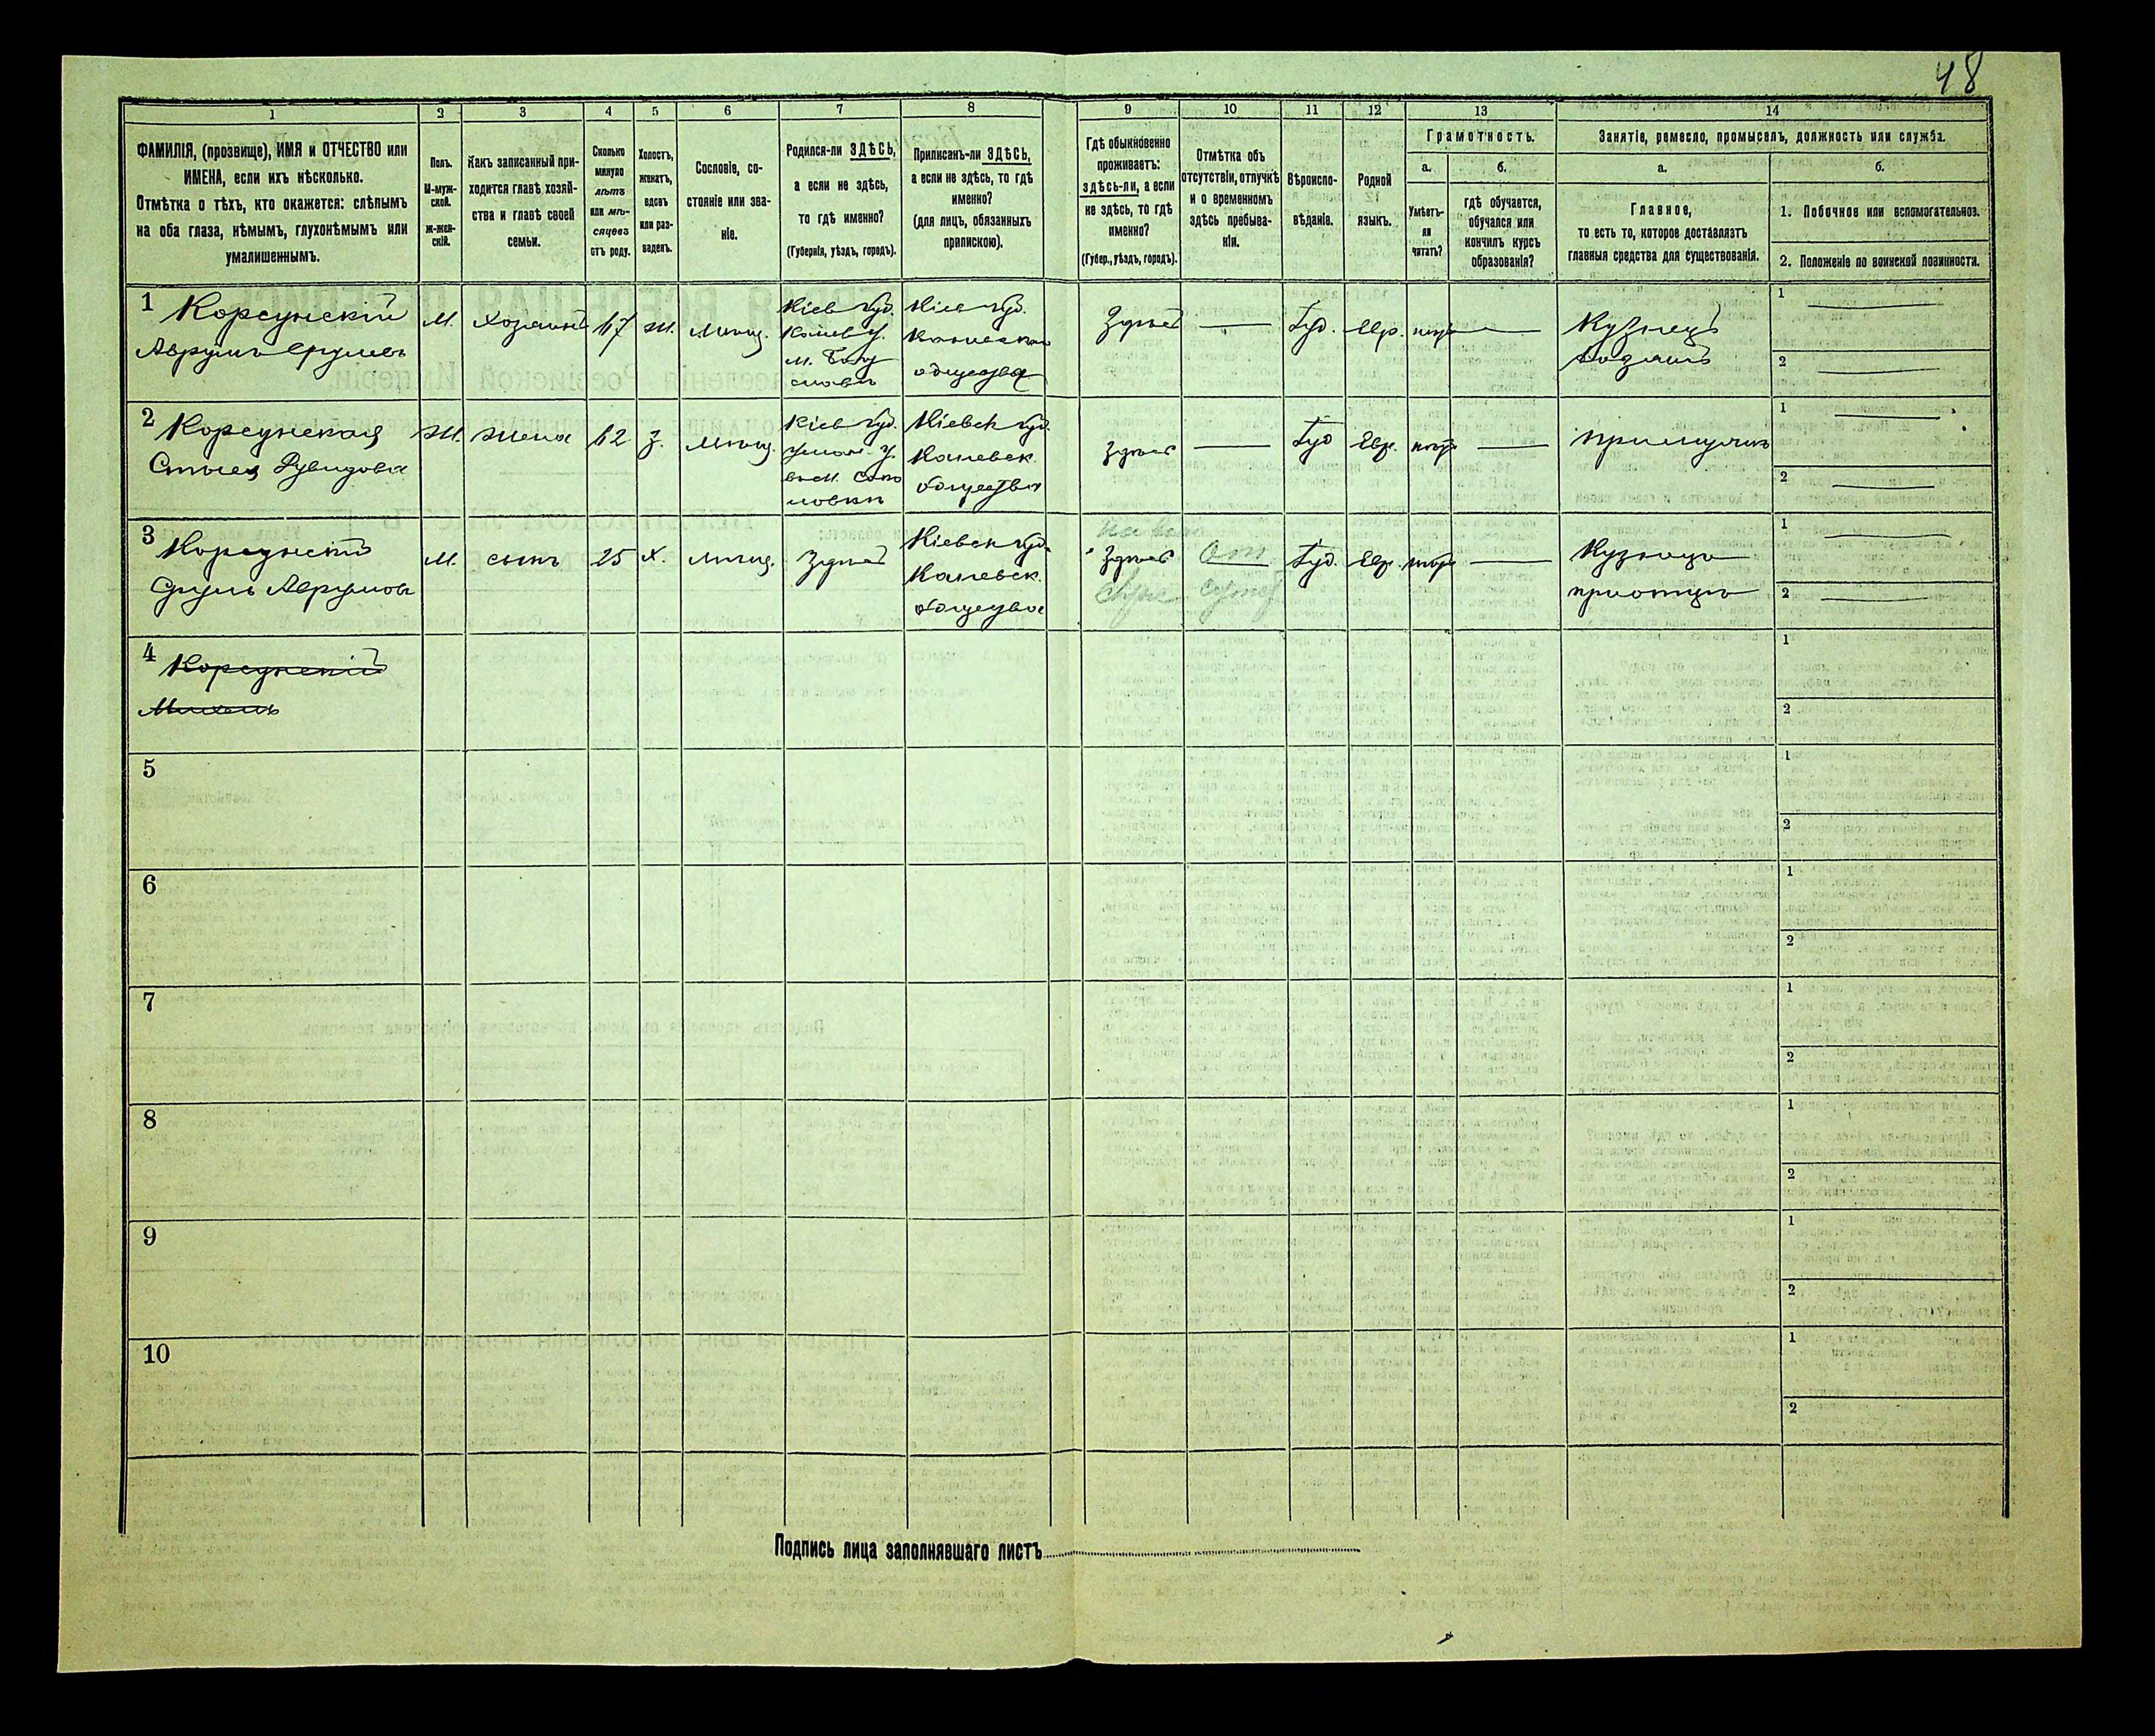 48
1
2
3
4
5
6
7
8
9
10
11
12
13
14
ФАМИЛІЯ, (прозвище), ИМЯ и ОТЧЕСТВО или
ИМЕНА, если ихъ нѣсколько.
Отмѣтка о тѣхъ, кто окажется: слѣпымъ
на оба глаза, нѣмымъ, глухонѣмымъ или
умалишеннымъ.
Полъ.
М-муж-
ской.
Ж-жен-
скій.
Какъ записанный при-
ходится главѣ хозяй-
ства и главѣ своей
семьи.
Сколько
минуло
лѣтъ
или мѣ-
сяцевъ
отъ роду.
Холостъ,
женатъ,
вдовъ
или раз-
веденъ.
Сословіе, со-
стояніе или зва-
ніе.
Родился-ли ЗДѢСЬ,
а если не здѣсь,
то гдѣ именно?
(Губернія, уѣздъ, городъ).
Приписанъ-ли ЗДѢСЬ,
а если не здѣсь, то гдѣ
именно?
(для лицъ, обязанныхъ
припискою).
Гдѣ обыкновенно
проживаетъ:
здѣсь-ли, а если
не здѣсь, то гдѣ
именно?
(Губер., уѣздъ, городъ).
Отмѣтка объ
отсутствіи, отлучкѣ
и о временномъ
здѣсь пребыва-
ніи.
Вѣроиспо-
вѣданіе.
Родной
языкъ.
Грамотность.
а.
Умѣетъ-
ли
читать?
б.
гдѣ обучается,
обучался или
кончилъ курсъ
образованія?
Занятіе, ремесло, промыселъ, должность или служба.
а.
Главное,
то есть то, которое доставляетъ
главныя средства для существованія.
б.
1. Побочное или вспомогательное.
2. Положеніе по воинской повинности.
1 Корсунскій
Аврумъ Сруліевъ
М.
Хозяинъ
67
Ж.
Мѣщ.
Кіев губ.
Канев у.
м. Богу
славъ
Кіев губ.
Каневскаго
общества
Здѣсь
Іуд.
Евр.
нѣтъ
Кузнецъ
1
2
2 Корсунская
Рувидова
Ж.
Жена
62
З.
Мѣщ.
Кіев губ.
Уман. у.
въ м. Соко
ловкѣ
Кіевск губ.
Каневск.
общества
Здѣсь
Іуд
Евр.
нѣтъ
при мужѣ
1
2
3 Корсунскій
Сруль Аврумовъ
М.
сынъ
25
Х.
мѣщ.
Здѣсь
Кіевск губ.
Каневск.
общества
Здѣсь
От
Іуд.
Евр.
нѣтъ
Кузнецъ
при отцѣ
1
2
4 Корсунскій
1
2
5
1
2
6
1
2
7
1
2
8
1
2
9
1
2
10
1
2
Подпись лица заполнявшаго листъ